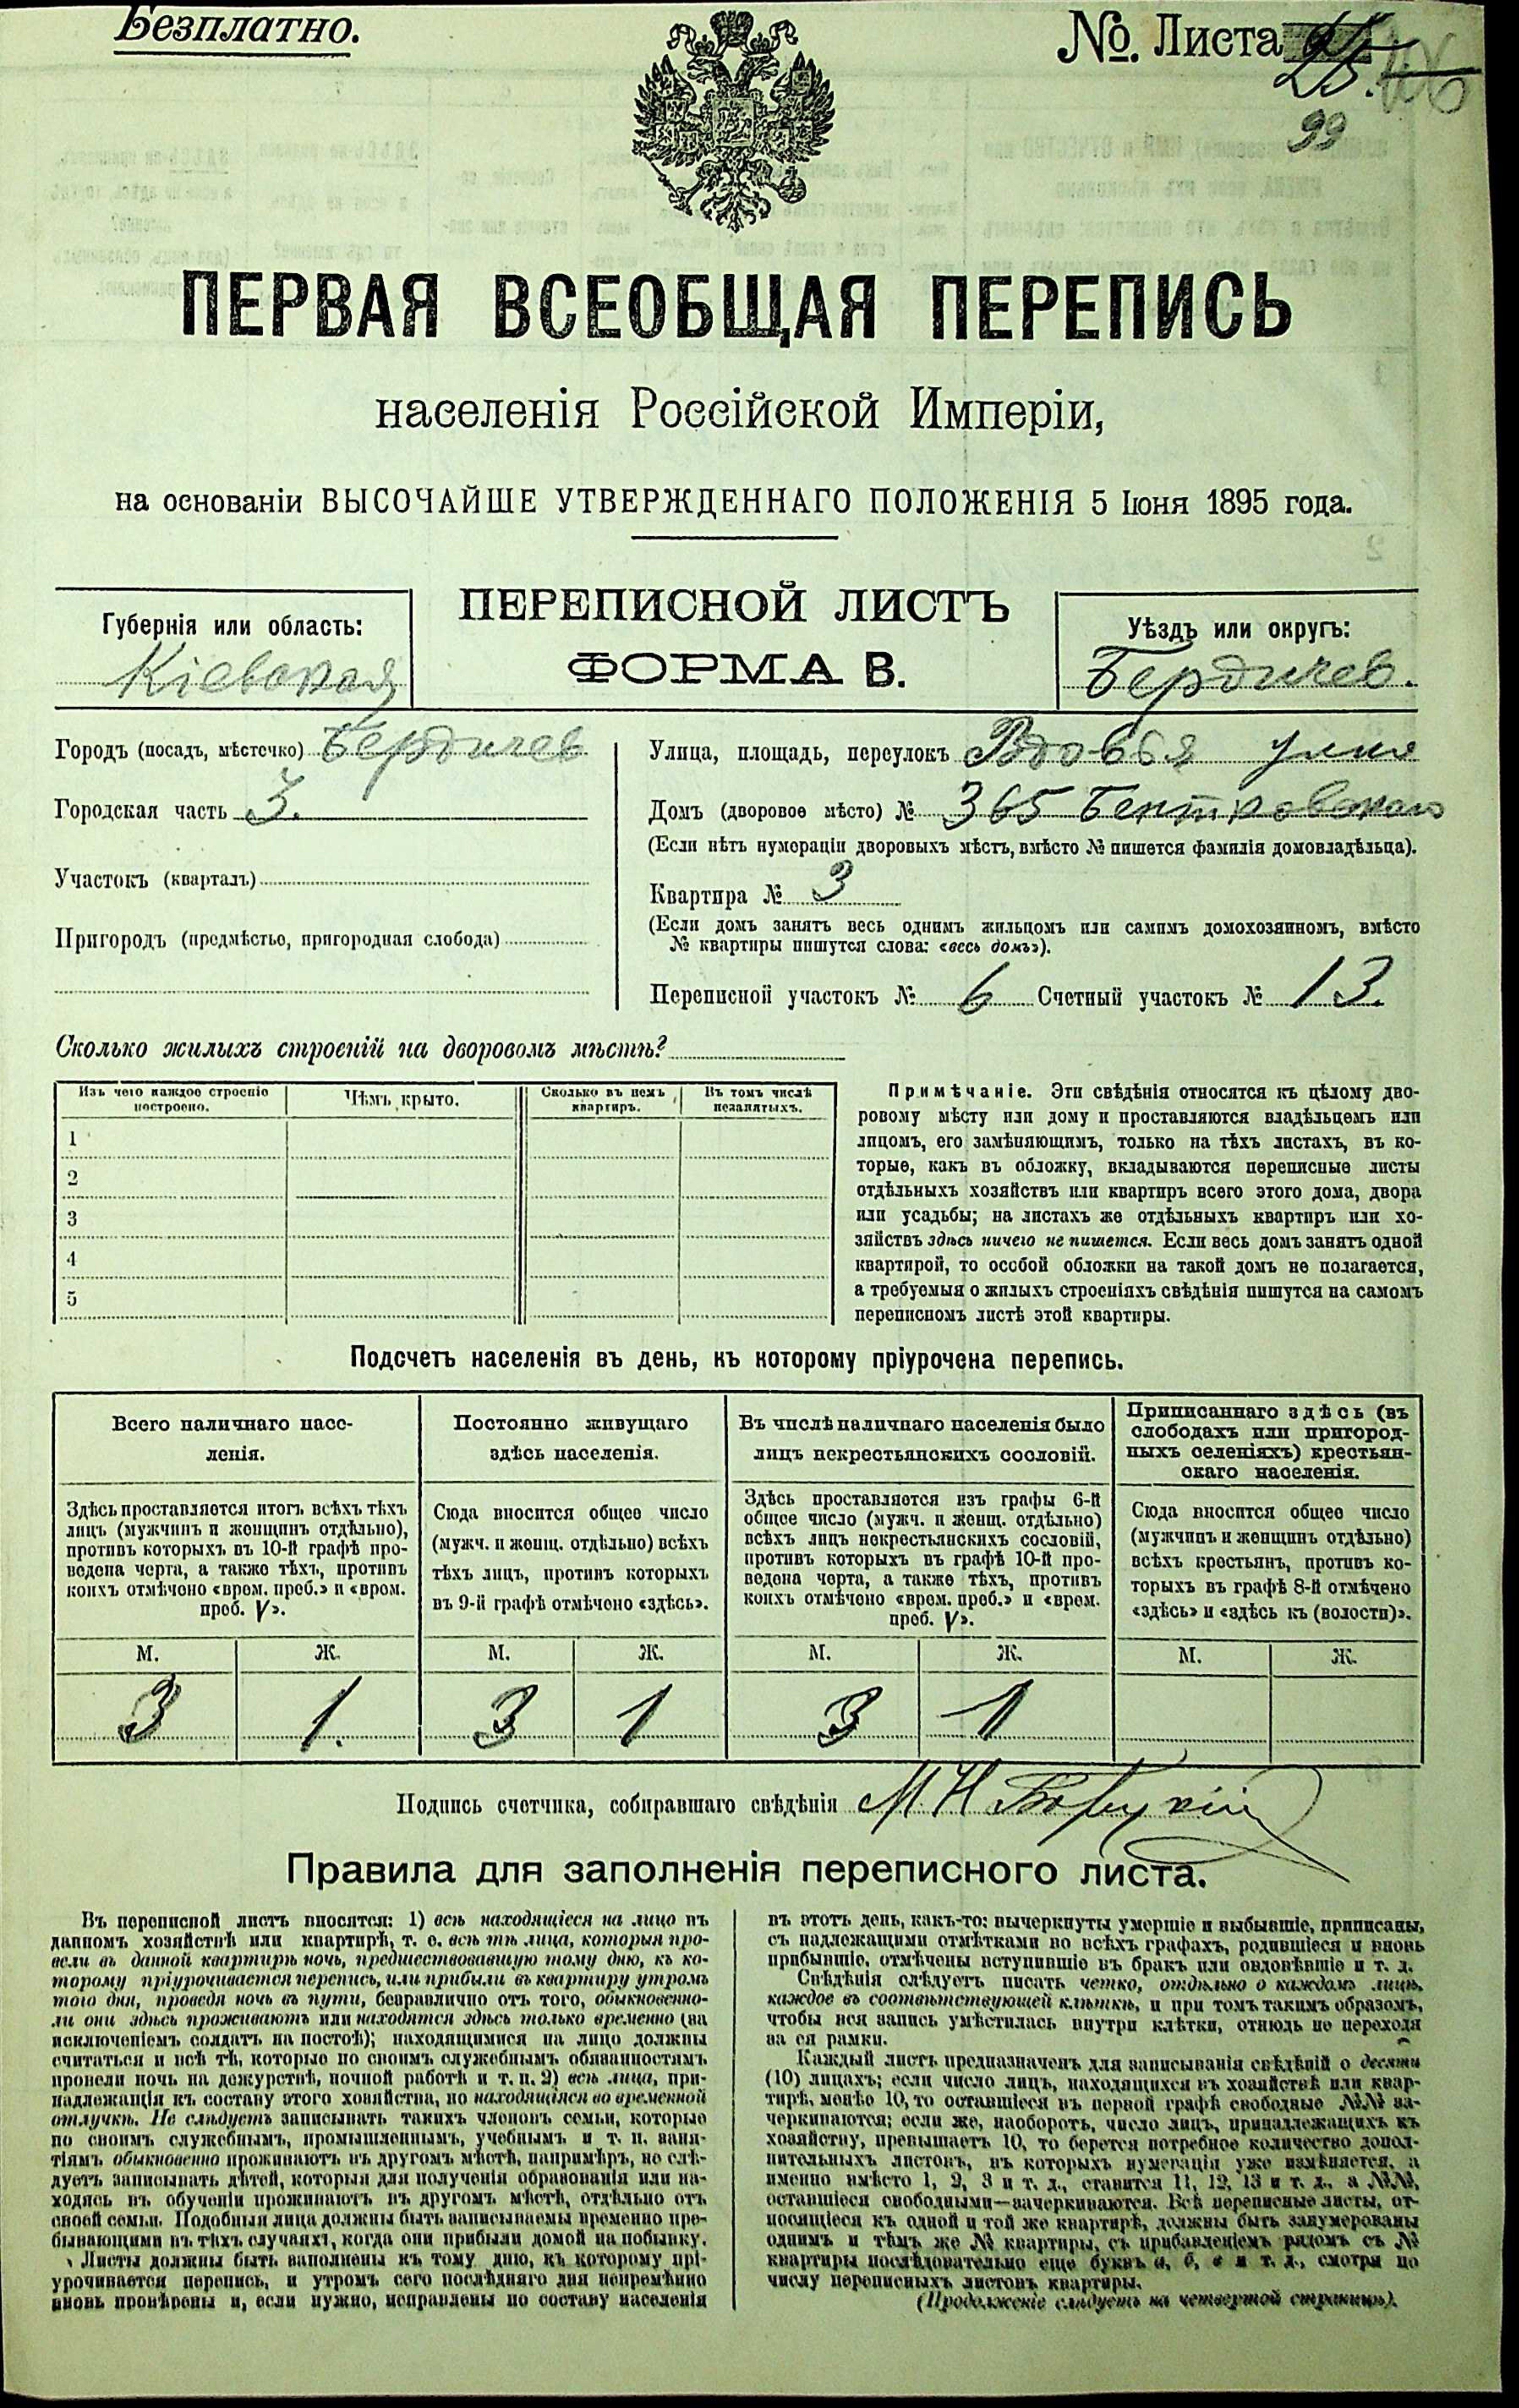 Безплатно.
№. Листа 25.
99
ПЕРВАЯ ВСЕОБЩАЯ ПЕРЕПИСЬ
населенія Россійской Имперіи,
на основаніи ВЫСОЧАЙШЕ УТВЕРЖДЕННАГО ПОЛОЖЕНІЯ 5 Іюня 1895 года.
ПЕРЕПИСНОЙ ЛИСТЪ
ФОРМА В.
Губернія или область:
Кіевская
Уѣздъ или округъ:
Бердичев.
Городъ (посадъ, мѣстечко) Бердичев
Городская часть 3.
Участокъ (кварталъ)
Пригородъ (предмѣстье, пригородная слобода)
Улица, площадь, переулокъ Вдовья улия
Домъ (дворовое мѣсто) № 365 Бентковскаго
(Если нѣтъ нумераціи дворовыхъ мѣстъ, вмѣсто № пишется фамилія домовладѣльца).
Квартира № 3
(Если домъ занятъ весь однимъ жильцомъ или самимъ домохозяиномъ, вмѣсто
№ квартиры пишутся слова: «весь домъ»).
Переписной участокъ № 6 Счетный участокъ № 13.
Сколько жилыхъ строеній на дворовомъ мѣстѣ?
Изъ чего каждое строеніе
построено.
Чѣмъ крыто.
Сколько въ немъ
квартиръ.
Въ томъ числѣ
незанятыхъ.
1
2
3
4
5
Примѣчаніе. Эти свѣдѣнія относятся къ цѣлому дво-
ровому мѣсту или дому и проставляются владѣльцемъ или
лицомъ, его замѣняющимъ, только на тѣхъ листахъ, въ ко-
торые, какъ въ обложку, вкладываются переписные листы
отдѣльныхъ хозяйствъ или квартиръ всего этого дома, двора
или усадьбы; на листахъ же отдѣльныхъ квартиръ или хо-
зяйствъ здѣсь ничего не пишется. Если весь домъ занятъ одной
квартирой, то особой обложки на такой домъ не полагается,
а требуемыя о жилыхъ строеніяхъ свѣдѣнія пишутся на самомъ
переписномъ листѣ этой квартиры.
Подсчетъ населенія въ день, къ которому пріурочена перепись.
Всего наличнаго насе-
ленія.
Здѣсь проставляется итогъ всѣхъ тѣхъ
лицъ (мужчинъ и женщинъ отдѣльно),
противъ которыхъ въ 10-й графѣ про-
ведена черта, а также тѣхъ, противъ
коихъ отмѣчено «врем. преб.» и «врем.
преб. V».
М. Ж.
3 1.
Постоянно живущаго
здѣсь населенія.
Сюда вносится общее число
(мужч. и женщ. отдѣльно) всѣхъ
тѣхъ лицъ, противъ которыхъ
въ 9-й графѣ отмѣчено «здѣсь».
М. Ж.
3 1
Въ числѣ наличнаго населенія было
лицъ некрестьянскихъ сословій.
Здѣсь проставляется изъ графы 6-й
общее число (мужч. и женщ. отдѣльно)
всѣхъ лицъ некрестьянскихъ сословій,
противъ которыхъ въ графѣ 10-й про-
ведена черта, а также тѣхъ, противъ
коихъ отмѣчено «врем. преб.» и «врем.
преб. V».
М. Ж.
3 1
Приписаннаго здѣсь (въ
слободахъ или пригород-
ныхъ селеніяхъ) крестьян-
скаго населенія.
Сюда вносится общее число
(мужчинъ и женщинъ отдѣльно)
всѣхъ крестьянъ, противъ ко-
торыхъ въ графѣ 8-й отмѣчено
«здѣсь» и «здѣсь къ (волости)».
М. Ж.
Подпись счетчика, собиравшаго свѣдѣнія М Н
Правила для заполненія переписного листа.
Въ переписной листъ вносятся: 1) всѣ находящіеся на лицо въ
данномъ хозяйствѣ или квартирѣ, т. е. всѣ тѣ лица, которыя про-
вели въ данной квартирѣ ночь, предшествовавшую тому дню, къ ко-
торому пріурочивается перепись, или прибыли въ квартиру утромъ
того дня, проведя ночь въ пути, безразлично отъ того, обыкновенно-
ли они здѣсь проживаютъ или находятся здѣсь только временно (за
исключеніемъ солдатъ на постоѣ); находящимися на лицо должны
считаться и всѣ тѣ, которые по своимъ служебнымъ обязанностямъ
провели ночь на дежурствѣ, ночной работѣ и т. п. 2) всѣ лица, при-
надлежащія къ составу этого хозяйства, но находящіяся во временной
отлучкѣ. Не слѣдуетъ записывать такихъ членовъ семьи, которые
по своимъ служебнымъ, промышленнымъ, учебнымъ и т. п. заня-
тіямъ обыкновенно проживаютъ въ другомъ мѣстѣ, напримѣръ, не слѣ-
дуетъ записывать дѣтей, которыя для полученія образованія или на-
ходясь въ обученіи проживаютъ въ другомъ мѣстѣ, отдѣльно отъ
своей семьи. Подобныя лица должны быть записываемы временно пре-
бывающими въ тѣхъ случаяхъ, когда они прибыли домой на побывку.
Листы должны быть заполнены къ тому дню, къ которому прі-
урочивается перепись, и утромъ сего послѣдняго дня непремѣнно
вновь провѣрены и, если нужно, исправлены по составу населенія
въ этотъ день, какъ-то: вычеркнуты умершіе и выбывшіе, приписаны,
съ надлежащими отмѣтками во всѣхъ графахъ, родившіеся и вновь
прибывшіе, отмѣчены вступившіе въ бракъ или овдовѣвшіе и т. д.
Свѣдѣнія слѣдуетъ писать четко, отдѣльно о каждомъ лицѣ,
каждое въ соотвѣтствующей клѣткѣ, и при томъ такимъ образомъ,
чтобы вся запись умѣстилась внутри клѣтки, отнюдь не переходя
за ея рамки.
Каждый листъ предназначенъ для записыванія свѣдѣній о десяти
(10) лицахъ; если число лицъ, находящихся въ хозяйствѣ или квар-
тирѣ, менѣе 10, то оставшіеся въ первой графѣ свободные №№ за-
черкиваются; если же, наоборотъ, число лицъ, принадлежащихъ къ
хозяйству, превышаетъ 10, то берется потребное количество допол-
нительныхъ листовъ, въ которыхъ нумерація уже измѣняется, а
именно вмѣсто 1, 2, 3 и т. д., ставится 11, 12, 13 и т. д., а №№,
оставшіеся свободными—зачеркиваются. Всѣ переписные листы, от-
носящіеся къ одной и той же квартирѣ, должны быть занумерованы
однимъ и тѣмъ же № квартиры, съ прибавленіемъ рядомъ съ №
квартиры послѣдовательно еще буквъ а, б, в и т. д., смотря по
числу переписныхъ листовъ квартиры.
(Продолженіе слѣдуетъ на четвертой страницѣ).